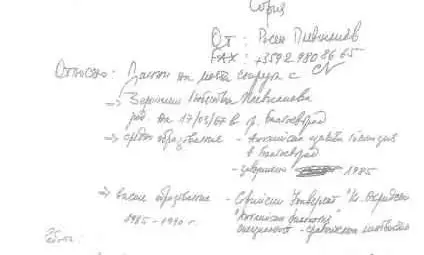 София
От: Росен Плевнелиев
FAX: +3592 980 86 65
Относно: Данни на моята съпруга с CV
→ Плевнелиева
род. на 17/03/67 в гр. Благоевград
→ средно образование - Английска езикова гимназия
в Благоевград
- завършено 1985
→ висше образование - Софийски Университет "Кл. Охридски"
1985-1990 г. "Английска филология"
специалност -